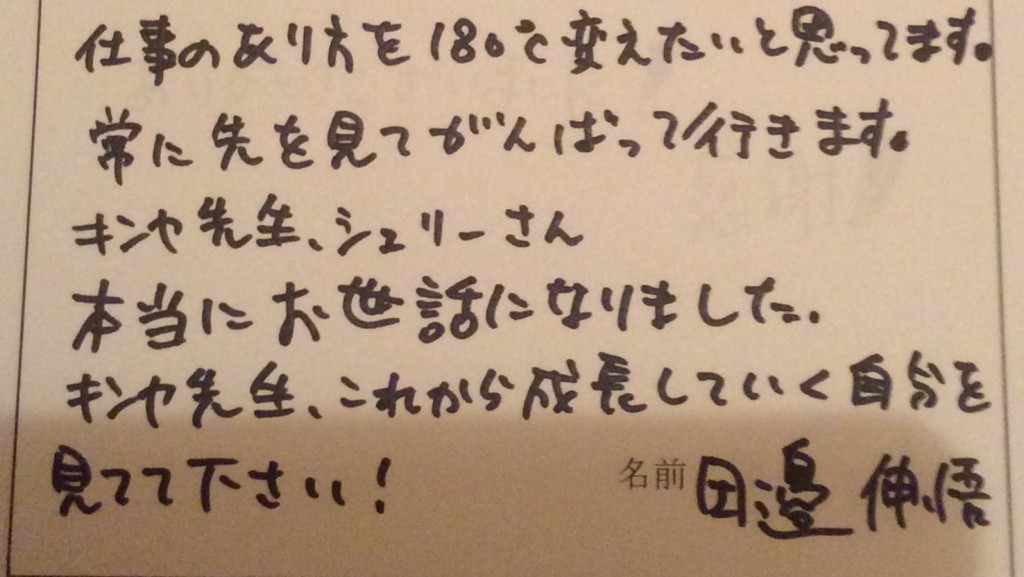 仕事のあり方を180°変えたいと思ってます。
常に先を見てがんばって行きます。
キンヤ先生、シュリーさん
本当にお世話になりました。
キンヤ先生、これから成長していく自分を
見てて下さい!
名前 田邉 伸悟